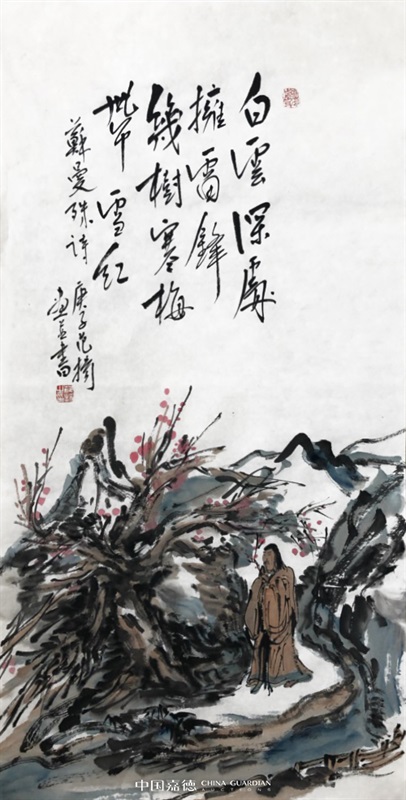 白雲深處
擁雷鋒
幾樹寒梅
帶雪红
蘇曼殊詩
庚子范揚
畫并書
中国嘉德 CHINA GUARDIAN
AUCTIONS